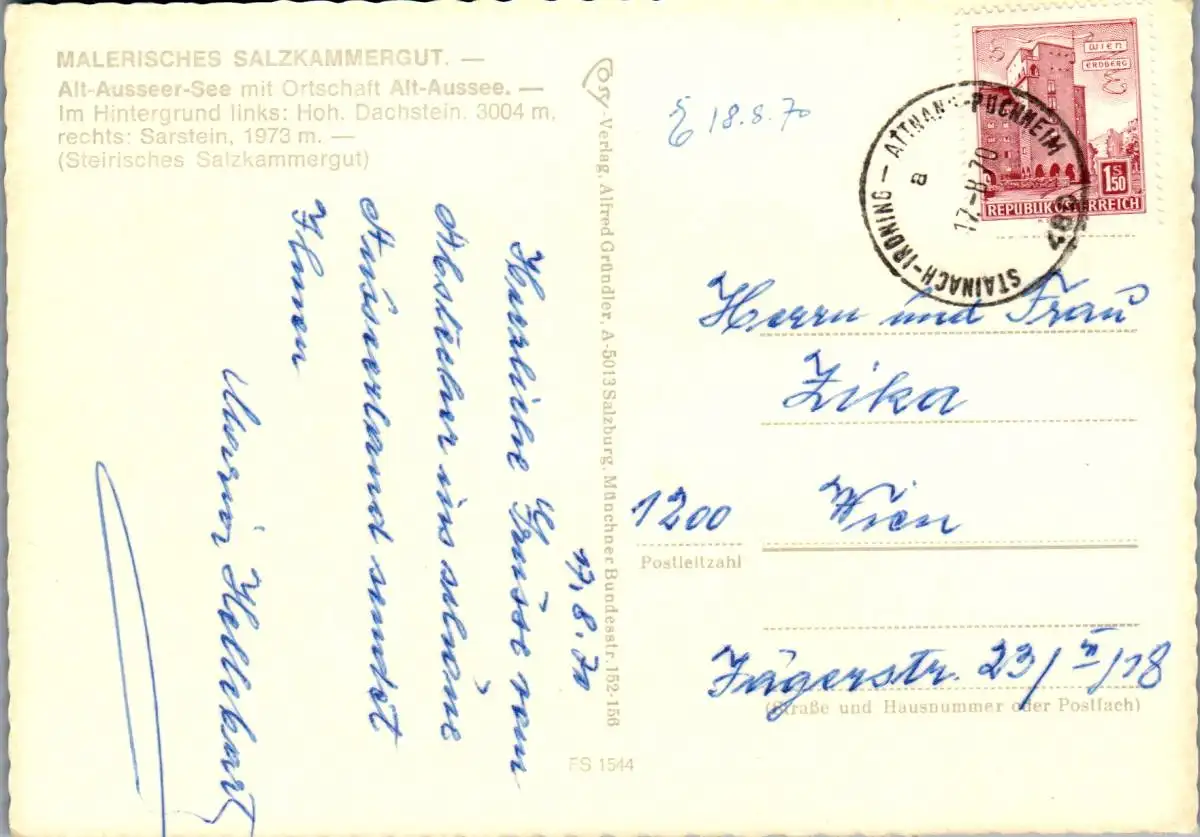 MALERISCHES SALZKAMMERGUT. —
Alt-Ausseer-See mit Ortschaft Alt-Aussee. —
Im Hintergrund links: Hoh. Dachstein. 3004 m,
rechts: Sarstein, 1973 m. —
(Steirisches Salzkammergut)
17. 8. 70
Herzliche Grüsse vom
Abstecher ins schöne
Ausseerland sendet
Ihnen
Cosy-Verlag, Alfred Gründler, A-5013 Salzburg, Münchner Bundesstr. 152-156
FS 1544
18.8.70
WIEN
ERDBERG
1 S 50
REPUBLIK ÖSTERREICH
STAINACH-IRDNING — ATTNANG-PUCHHEIM
a
17.-8.70
Herrn und Frau
Zika
1200 Wien
Postleitzahl
Jägerstr. 23/II/18
(Straße und Hausnummer oder Postfach)